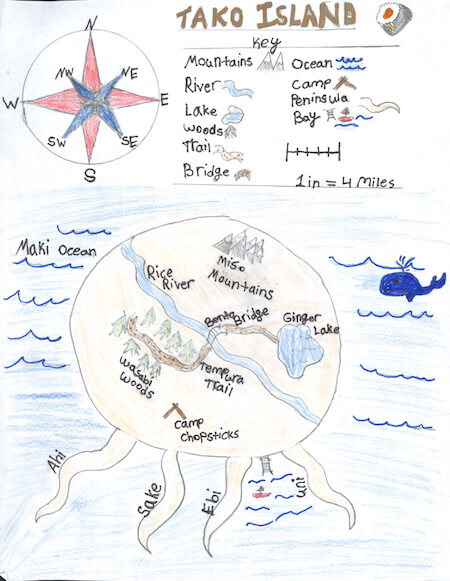 TAKO ISLAND
Key
Mountains
Ocean
River
Camp
Lake
Peninsula
Woods
Bay
Trail
Bridge
1 in = 4 Miles
N
NW
NE
W
E
SW
SE
S
Maki Ocean
Rice
River
Miso
Mountains
Bento Bridge
Ginger
Lake
Wasabi
Woods
Tempura
Trail
Camp
Chopsticks
Ahi
Sake
Ebi
Uni